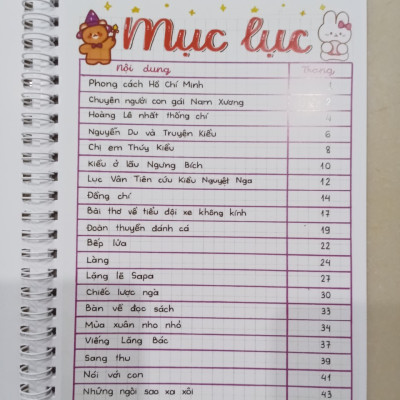 Mục lục
Nội dung Trang
Phong cách Hồ Chí Minh 1
Chuyện người con gái Nam Xương 2
Hoàng Lê nhất thống chí 4
Nguyễn Du và Truyện Kiều 6
Chị em Thúy Kiều 8
Kiều ở lầu Ngưng Bích 10
Lục Vân Tiên cứu Kiều Nguyệt Nga 12
Đồng chí 14
Bài thơ về tiểu đội xe không kính 17
Đoàn thuyền đánh cá 19
Bếp lửa 22
Làng 24
Lặng lẽ Sapa 27
Chiếc lược ngà 30
Bàn về đọc sách 33
Mùa xuân nho nhỏ 34
Viếng Lăng Bác 37
Sang thu 39
Nói với con 41
Những ngôi sao xa xôi 43